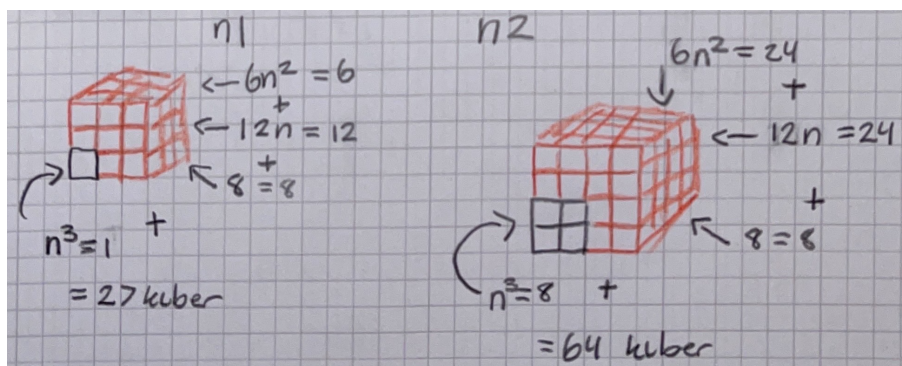 n1
← 6n² = 6
+
← 12n = 12
+
8 = 8
n³ = 1 +
= 27 kuber
n2
6n² = 24
+
← 12n = 24
+
8 = 8
n³ = 8 +
= 64 kuber